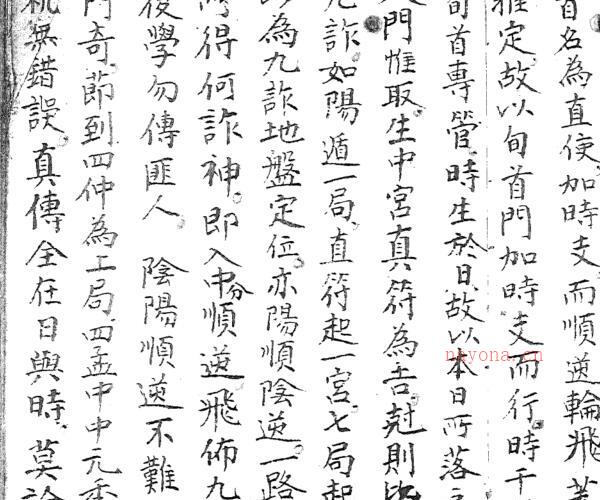 名為直使加時支而順逆輪飛
定故以旬首門加時支而行時干
旬首專管時生於日故以本日所落
門惟取生中宮真符為吉尅則
詐如陽遁一局直符起一宮七局起
為九詐地盤定位亦陽順陰逆一路
得何詐神即入中分順逆飛佈九
後學勿傳匪人 陰陽順逆不難
門奇節到四仲為上局四孟中中元
無錯誤真傳全在日與時莫
nayona.cn